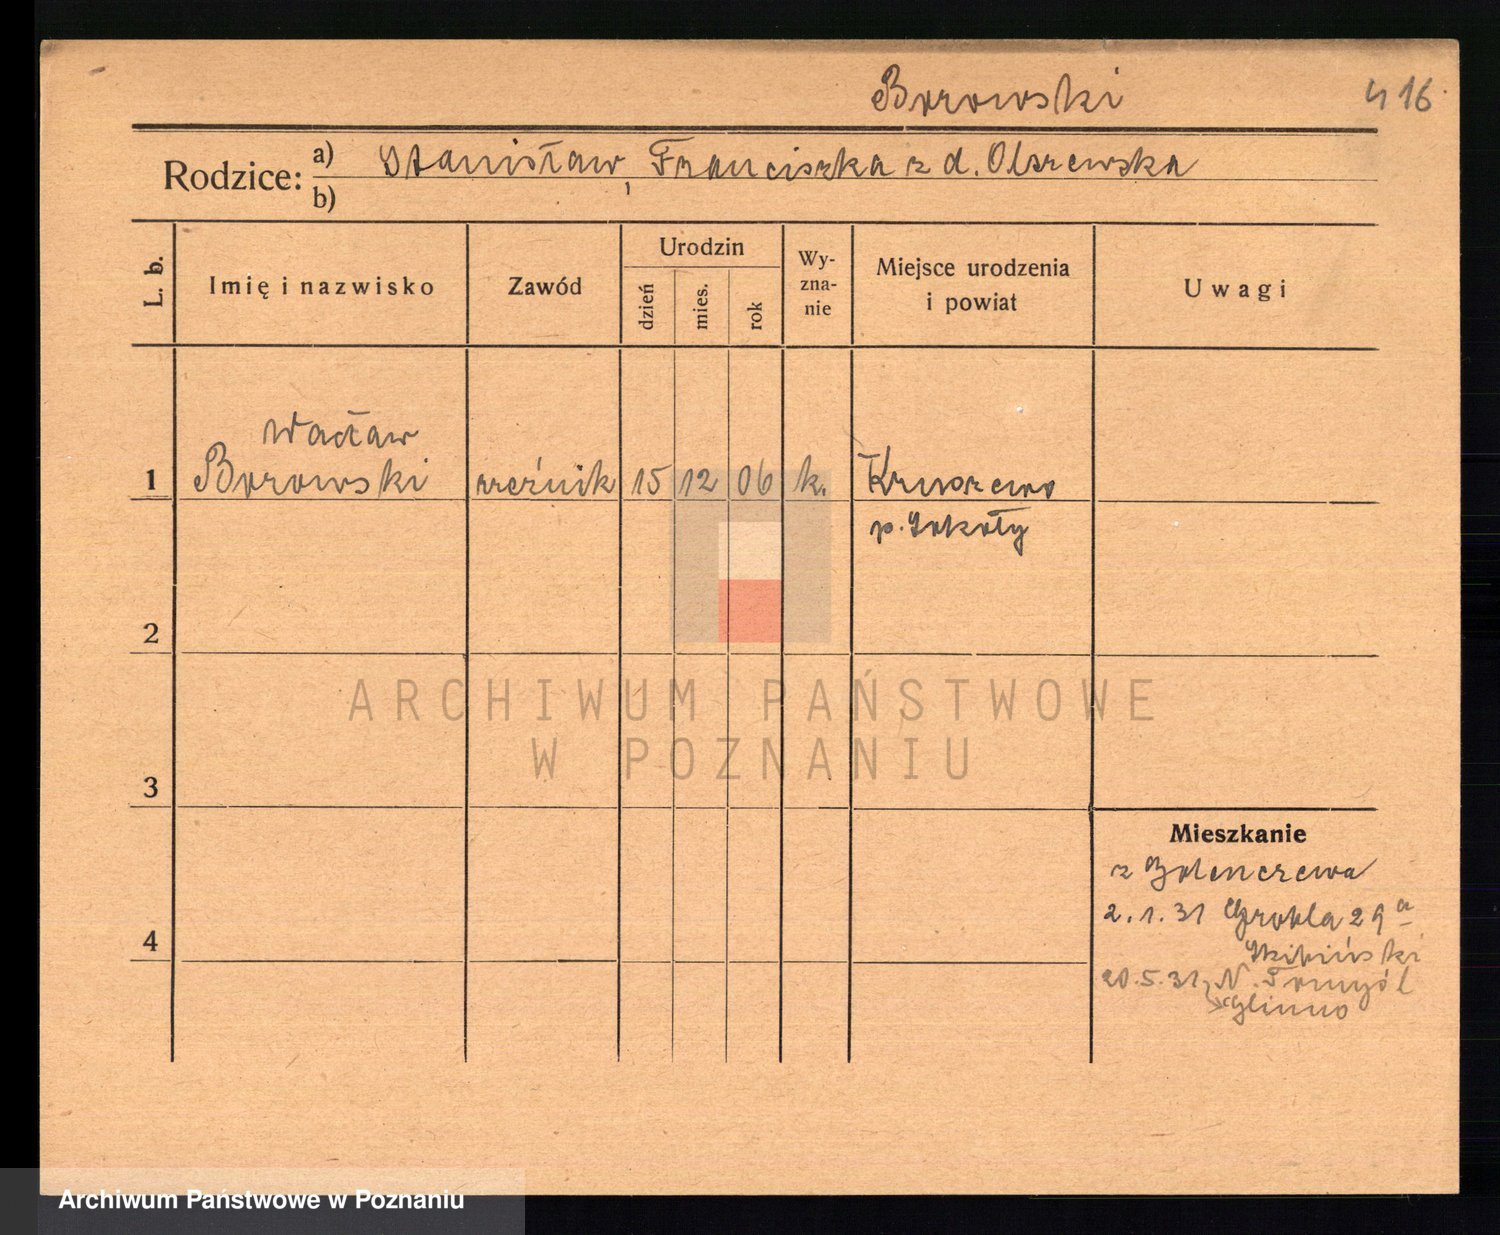 Borowski 416
Rodzice: a) Stanisław, Franciszka z d. Olszewska
b)
L. b. Imię i nazwisko Zawód Urodzin dzień mies. rok Wy-zna-nie Miejsce urodzenia i powiat Uwagi
Wacław
1 Borowski rzeźnik 15 12 06 k. Kruszewo
p. Sokoły
2
ARCHIWUM PAŃSTWOWE
W POZNANIU
3
Mieszkanie
z Golenczewa
2.1.31 Grobla 29a
4
Skibiński
20.5.31 N. Tomyśl
Glinno
Archiwum Państwowe w Poznaniu